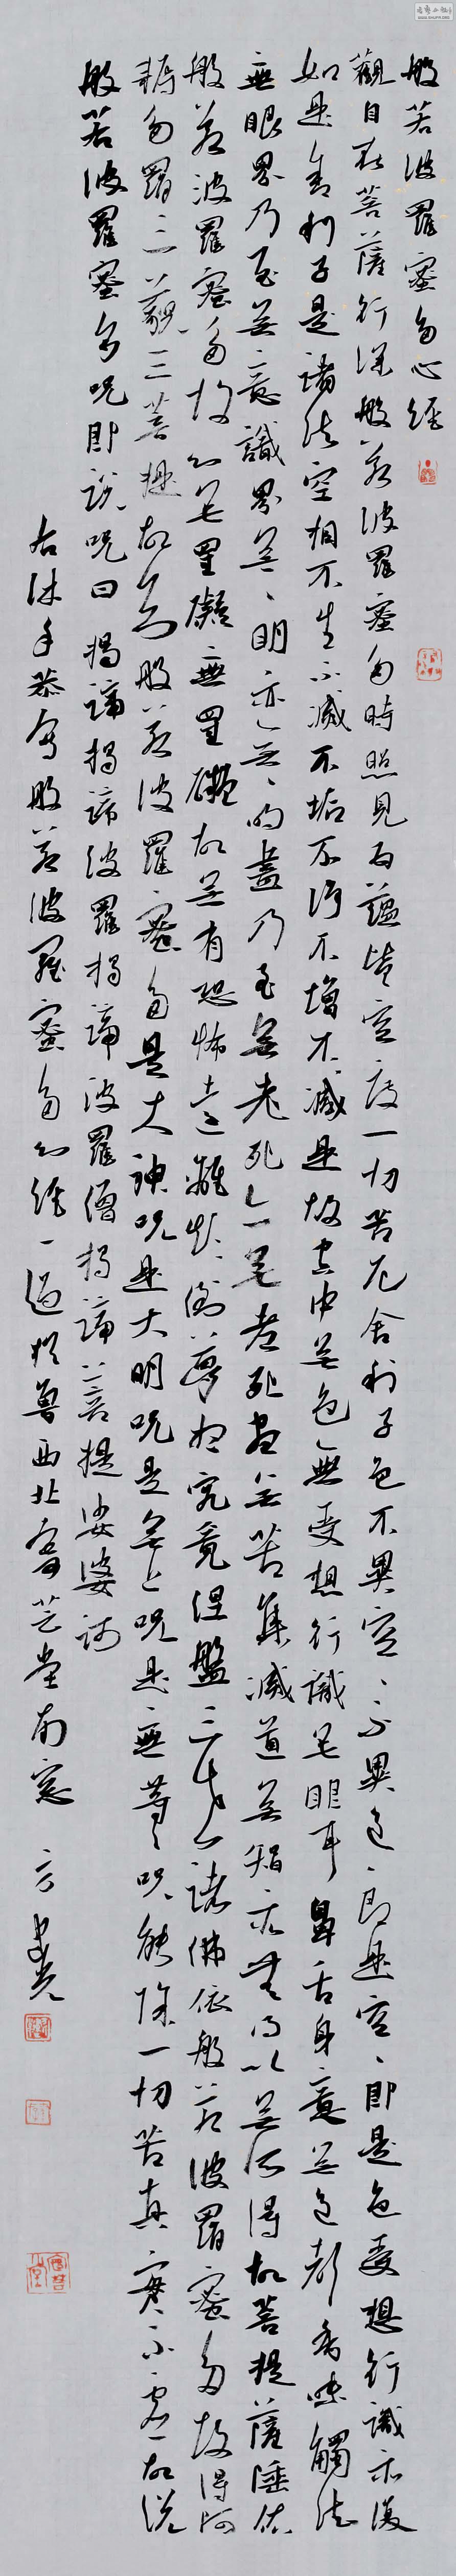 般若波羅蜜多心經
觀自在菩薩行深般若波羅蜜多時照見五蘊皆空度一切苦厄舍利子色不異空、不異色、即是空、即是色受想行識亦復
如是舍利子是諸法空相不生不滅不垢不淨不增不減是故空中無色無受想行識無眼耳鼻舌身意無色聲香味觸法
無眼界乃至無意識界無、明、亦無、明盡乃至無老死亦無老死盡無苦集滅道無智亦無得以無所得故菩提薩埵依
般若波羅蜜多故心無罣礙無罣礙故無有恐怖遠離顛倒夢想究竟涅盤三世諸佛依般若波羅蜜多故得阿
耨多羅三藐三菩提故知般若波羅蜜多是大神咒是大明咒是無上咒是無等等咒能除一切苦真實不虛故說
般若波羅蜜多咒即說咒曰揭諦揭諦波羅揭諦波羅僧揭諦菩提娑婆訶
右沐手恭寫般若波羅蜜多心經一過於魯西北 芝堂南窗